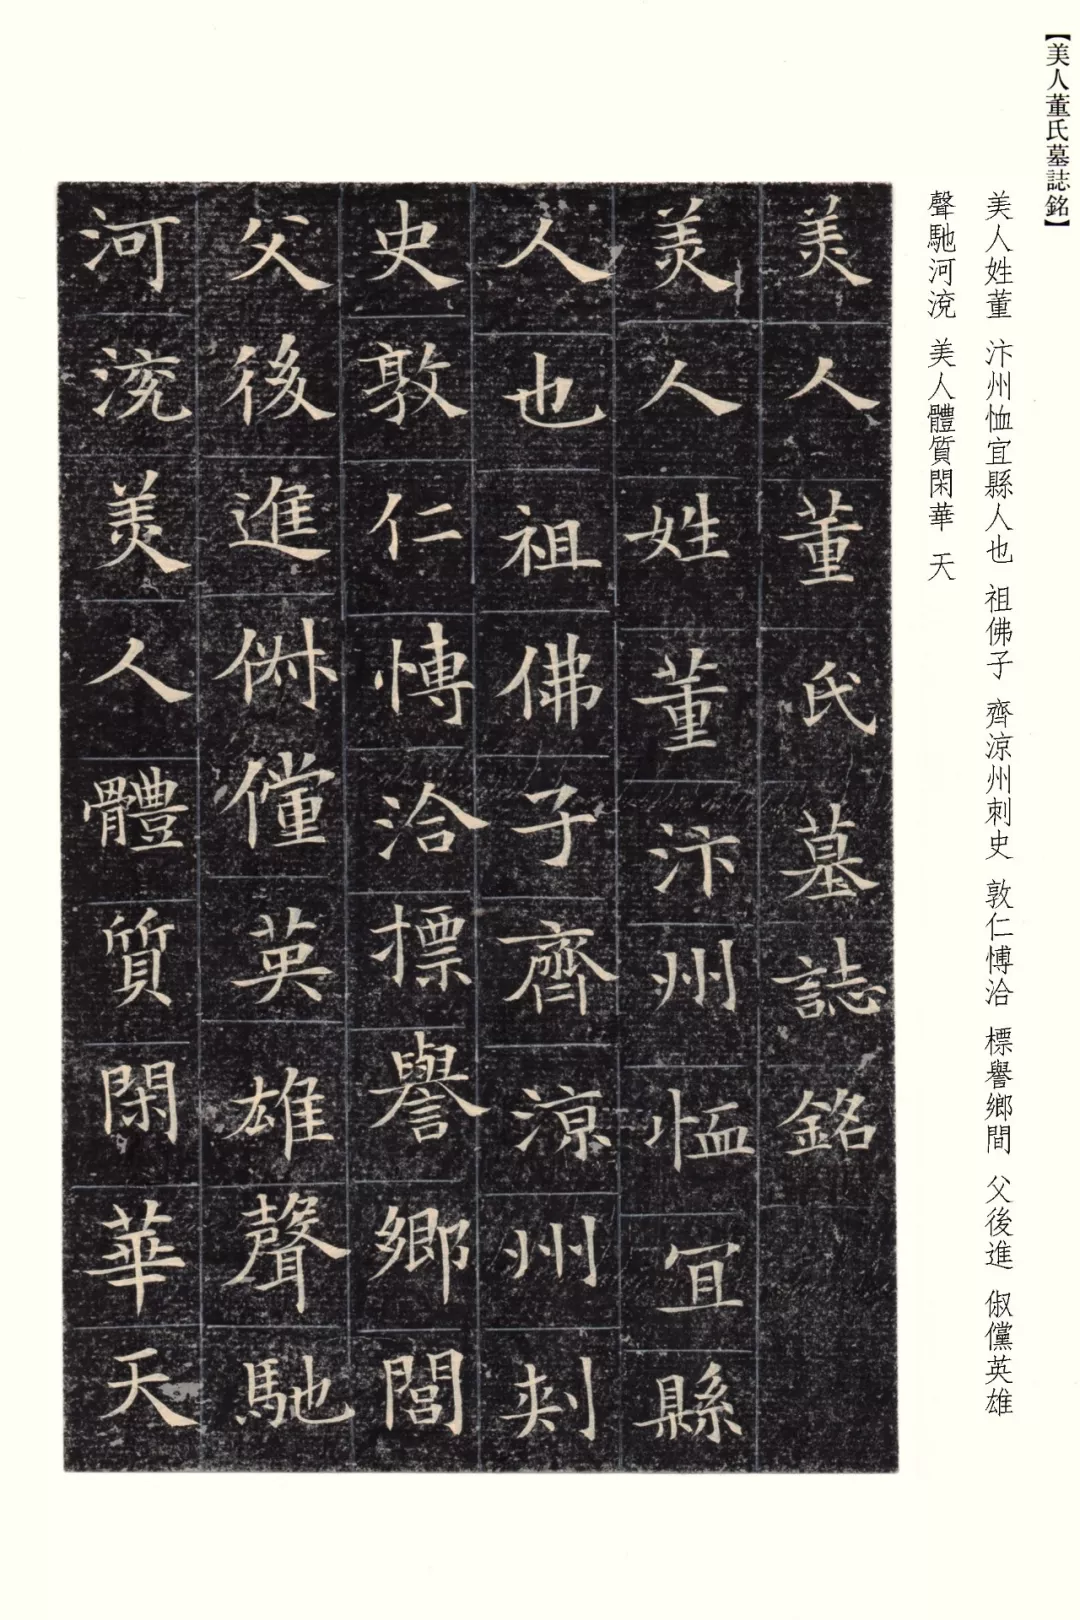 【美人董氏墓誌銘】
美人姓董 汴州恤宜縣人也 祖佛子 齊涼州刺史 敦仁博洽 標譽鄉間 父後進 俶儻英雄
聲馳河流 美人體質閑華 天
美人董氏墓誌銘
美人姓董汴州恤宜縣
人也祖佛子齊涼州刺
史敦仁愽洽標譽鄉閭
父後進俶儻英雄聲馳
河流美人體質閑華天